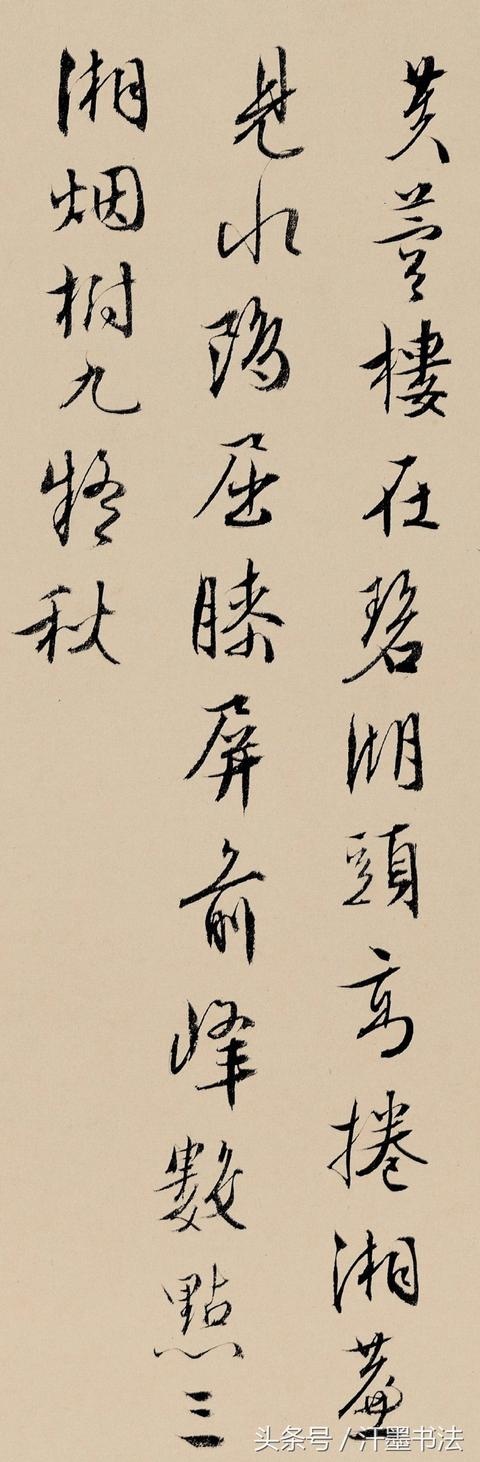 芙蓉樓在碧湖頭高捲湘簾
見水鷗屈膝屏前峰數點三
湘烟樹九疑秋
头条号/汗墨书法